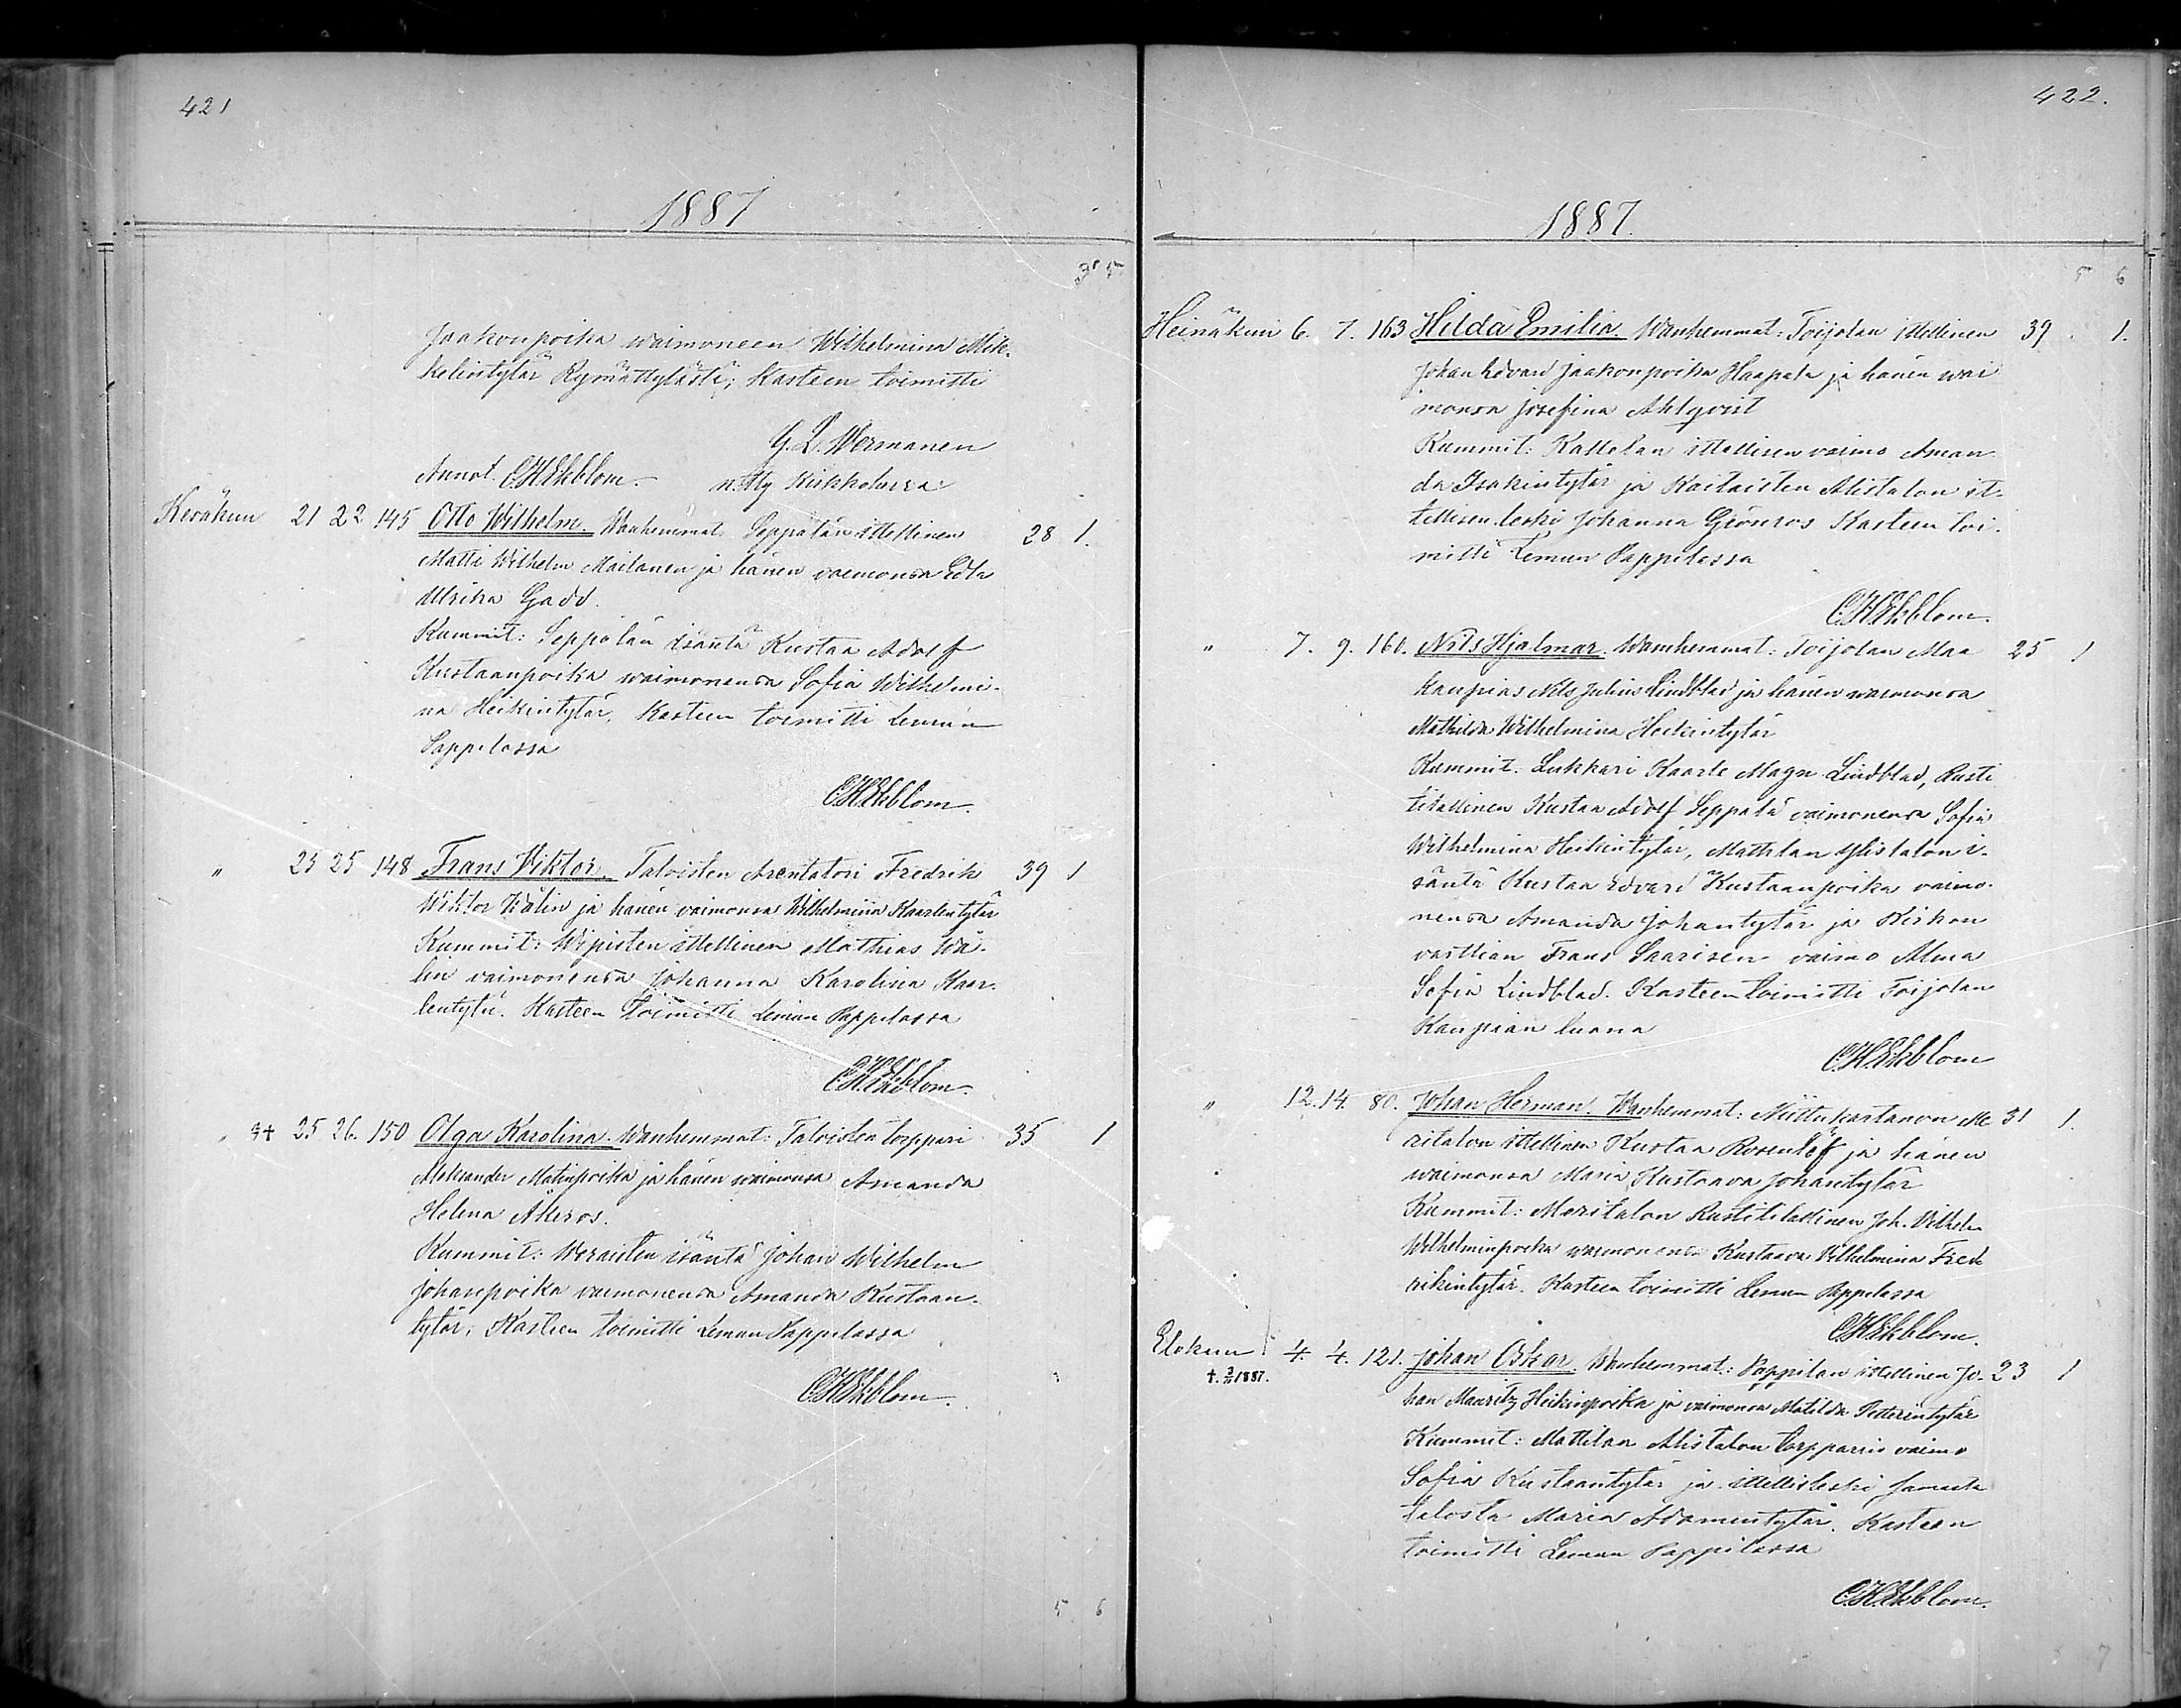 421
1887
3 5
Jaakonpoika waimoneen Wilhelmina Mik-
kelintytär Rymättylästä; Kasteen toimitti
G. L. Wermanen
Annot. C.H.Ekblom. n.
Kesäkuu 21 22 145 Otto Wilhelm. Wanhemmat: Seppälän ittellinen 28 1.
Matti Wilhelm Mailanen ja hänen vaimonsa Edla
Ulrika Gadd.
Kummit: Seppälän isäntä Kustaa Adolf
Kustaanpoika waimonensa Sofia Wilhelmi-
na Heikintytär. Kasteen toimitti Lemun
Pappilassa
C.H.Ekblom.
" 23 25 148 Frans Viktor. Taloisten Arentatori Fredrik 39 1
Wiktor Wälin ja hänen vaimonsa Wilhelmina Kaarlentytär
Kummit: Wijaisten ittellinen Mathias Wä-
lin vaimonensa Johanna Karolina Kaar-
lentytär. Kasteen toimitti Lemun Pappilassa
C.H.Ekblom.
" 25 26. 150 Olga Karolina. Wanhemmat: Taloisten torppari 35 1
Aleksander Matinpoika ja hänen waimonsa Amanda
Helena Åkerros.
Kummit: Weraisten isäntä Johan Wilhelm
Johanpoika vaimonensa Amanda Kustaan-
tytär. Kasteen toimitti Lemun Pappilassa
C.H.Ekblom.
5 6
422.
1887.
5 6
Heinäkuu 6. 7. 163 Hilda Emilia. Wanhemmat: Toijolan ittellinen 39 1.
Johan Edvard Jaakonpoika Haapala ja hänen wai
monsa Josefina Ahlqvist
Kummit: Kattelan ittellisen vaimo Aman
da Isakintytär ja Kaitaisten Alistalon it-
tellisen leski Johanna Grönroos Kasteen toi-
mitti Lemun Pappilassa
C.H.Ekblom.
" 7. 9. 160. Nils Hjalmar. Wanhemmat: Toijolan Maa 25 1
kaupias Nils Julius Lindblad ja hänen waimonsa
Mathilda Wilhelmina Heikintytär
Kummit. Lukkari Kaarle Magn. Lindblad, Rusti
tilallinen Kustaa Adolf Seppälä vaimonensa Sofia
Wilhelmina Heikintytär, Mattilan Ylistalon i-
säntä Kustaa Edvard Kustaanpoika vaimo-
nensa Amanda Johantytär ja Kirkon
vartian Frans Saarisen vaimo Alma
Sofia Lindblad. Kasteen toimitti Toijolan
Kaupian luona
C.H.Ekblom
" 12. 14. 80. Johan Herman. Wanhemmat: Nuittukartanon Me 31 1.
ritalon ittellinen Kustaa Rosenlöf ja hänen
waimonsa Maria Kustaava Johantytär
Kummit: Meritalon Rustitilallinen Joh. Vilhelm
Wilhelminpoika waimonensa Kustaava Vilhelmina Fred
rikintytär. Kasteen toimitti Lemun Pappilassa
C.H.Ekblom.
Elokuu 4. 4. 121. Johan Oskar. Wanhemmat: Pappilan ittellinen Jo- 23 1
†. 3/11 1887.
han Mauritz Heikinpoika ja vaimonsa Matilda Petterintytär
Kummit: Mattilan Alistalon torpparin vaimo
Sofia Kustaantytär ja ittellisleski samasta
talosta Maria Adamintytär. Kasteen
toimitti Lemun Pappilassa
C.H.Ekblom.
7